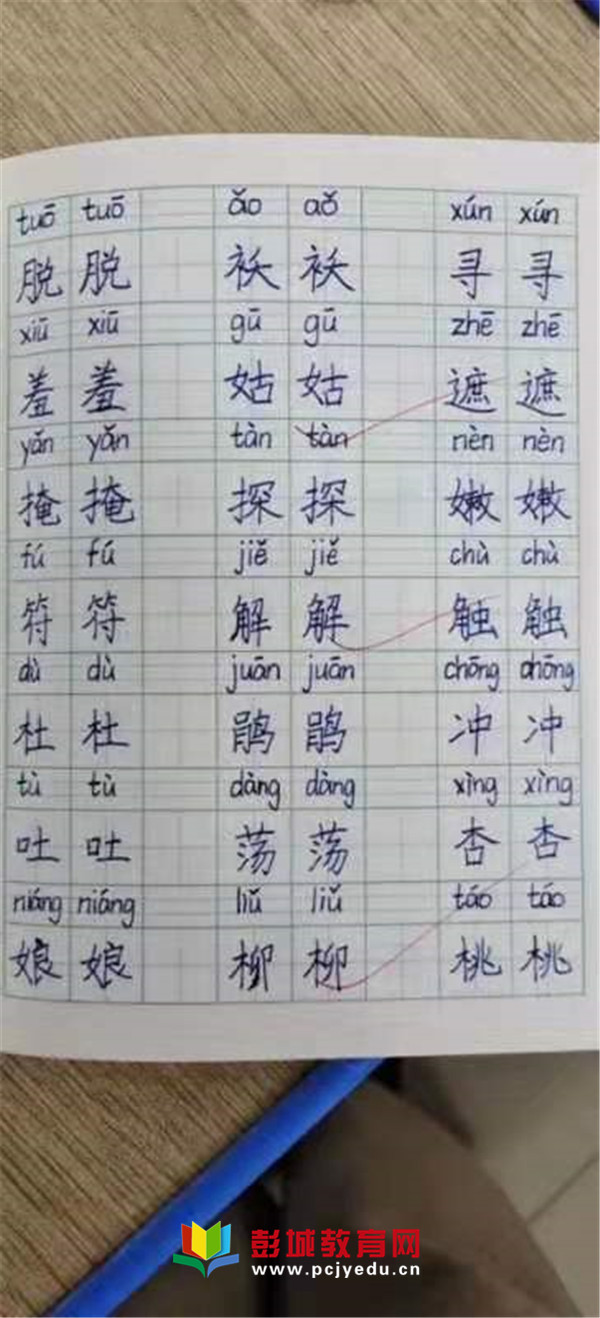 tuō tuō ǎo aǒ xún xún
脱 脱 袄 袄 寻 寻
xiū xiū gū gū zhē zhē
羞 羞 姑 姑 遮 遮
yǎn yǎn tàn tàn nèn nèn
掩 掩 探 探 嫩 嫩
fú fú jiě jiě chù chù
符 符 解 解 触 触
dù dù juān juān chōng chōng
杜 杜 鹃 鹃 冲 冲
tù tù dàng dàng xìng xìng
吐 吐 荡 荡 杏 杏
niáng niáng liǔ liǔ táo táo
娘 娘 柳 柳 桃 桃
彭城教育网
www.pcjyedu.cn